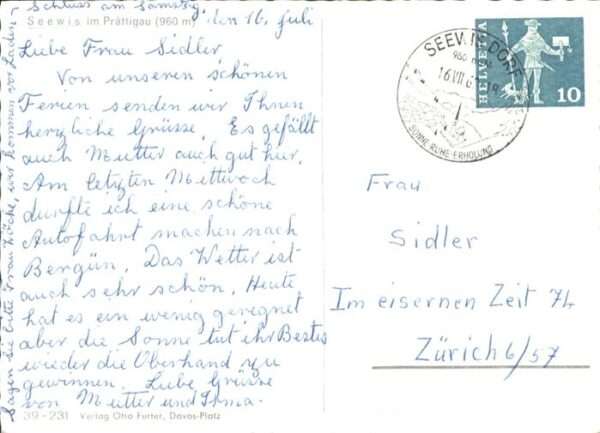 Schluss am Samstag.
Seewis im Prättigau (960 m)
den 16. Juli
Liebe Frau Sidler,
Von unseren schönen
Ferien senden wir Ihnen
herzliche Grüsse. Es gefällt
auch Mutter auch gut hier.
Am letzten Mittwoch
durfte ich eine schöne
Autofahrt machen nach
Bergün. Das Wetter ist
auch sehr schön. Heute
hat es ein wenig geregnet
aber die Sonne tut ihr Bestes
wieder die Oberhand zu
gewinnen. Liebe Grüsse
von Mutter und Irma.
39-231 Verlag Otto Furter, Davos-Platz
Sagen sie bitte Frau Köche, wir kommen vor Laden-
SEEWIS DORF
960 m
16 VII 6
SONNE RUHE ERHOLUNG
HELVETIA
10
Frau
Sidler
Im eisernen Zeit 74
Zürich 6/57